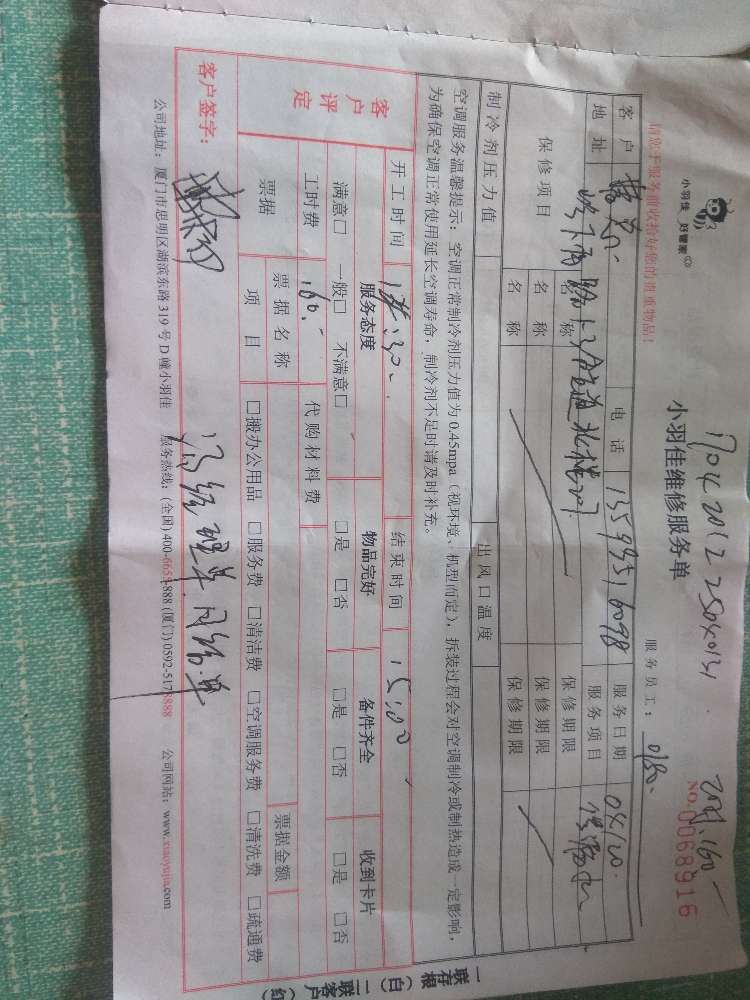 1704201225040131
160-
小羽佳 好管家
小羽佳维修服务单
NO.0068916
请您于服务前收拾好您的贵重物品!
服务员工: 0180.
客户 电话 13599516098 服务日期 04/20.
地址 服务项目
保修项目 名称 保修期限
名称 保修期限
名称 保修期限
制冷剂压力值 出风口温度
空调服务温馨提示:空调正常制冷剂压力值为0.45mpa(视环境、机型而定),拆装过程会对空调制冷或制热造成一定影响,
为确保空调正常使用延长空调寿命,制冷剂不足时请及时补充。
开工时间 结束时间 15:00
客户评定 服务态度 物品完好 备件齐全 收到卡片
满意□ 一般□ 不满意□ □是 □否 □是 □否 □是 □否
工时费 160.- 代购材料费
票据 票据名称 票据金额
项目 □搬办公用品 □服务费 □清洁费 □空调服务费 □清洗费 □疏通费
客户签字:
公司地址:厦门市思明区湖滨东路319号D幢小羽佳 服务热线:(全国)400-6655-888(厦门)0592-5178888 公司网站:www.xiaoyujia.com
一联存根(白) 二联客户(红)